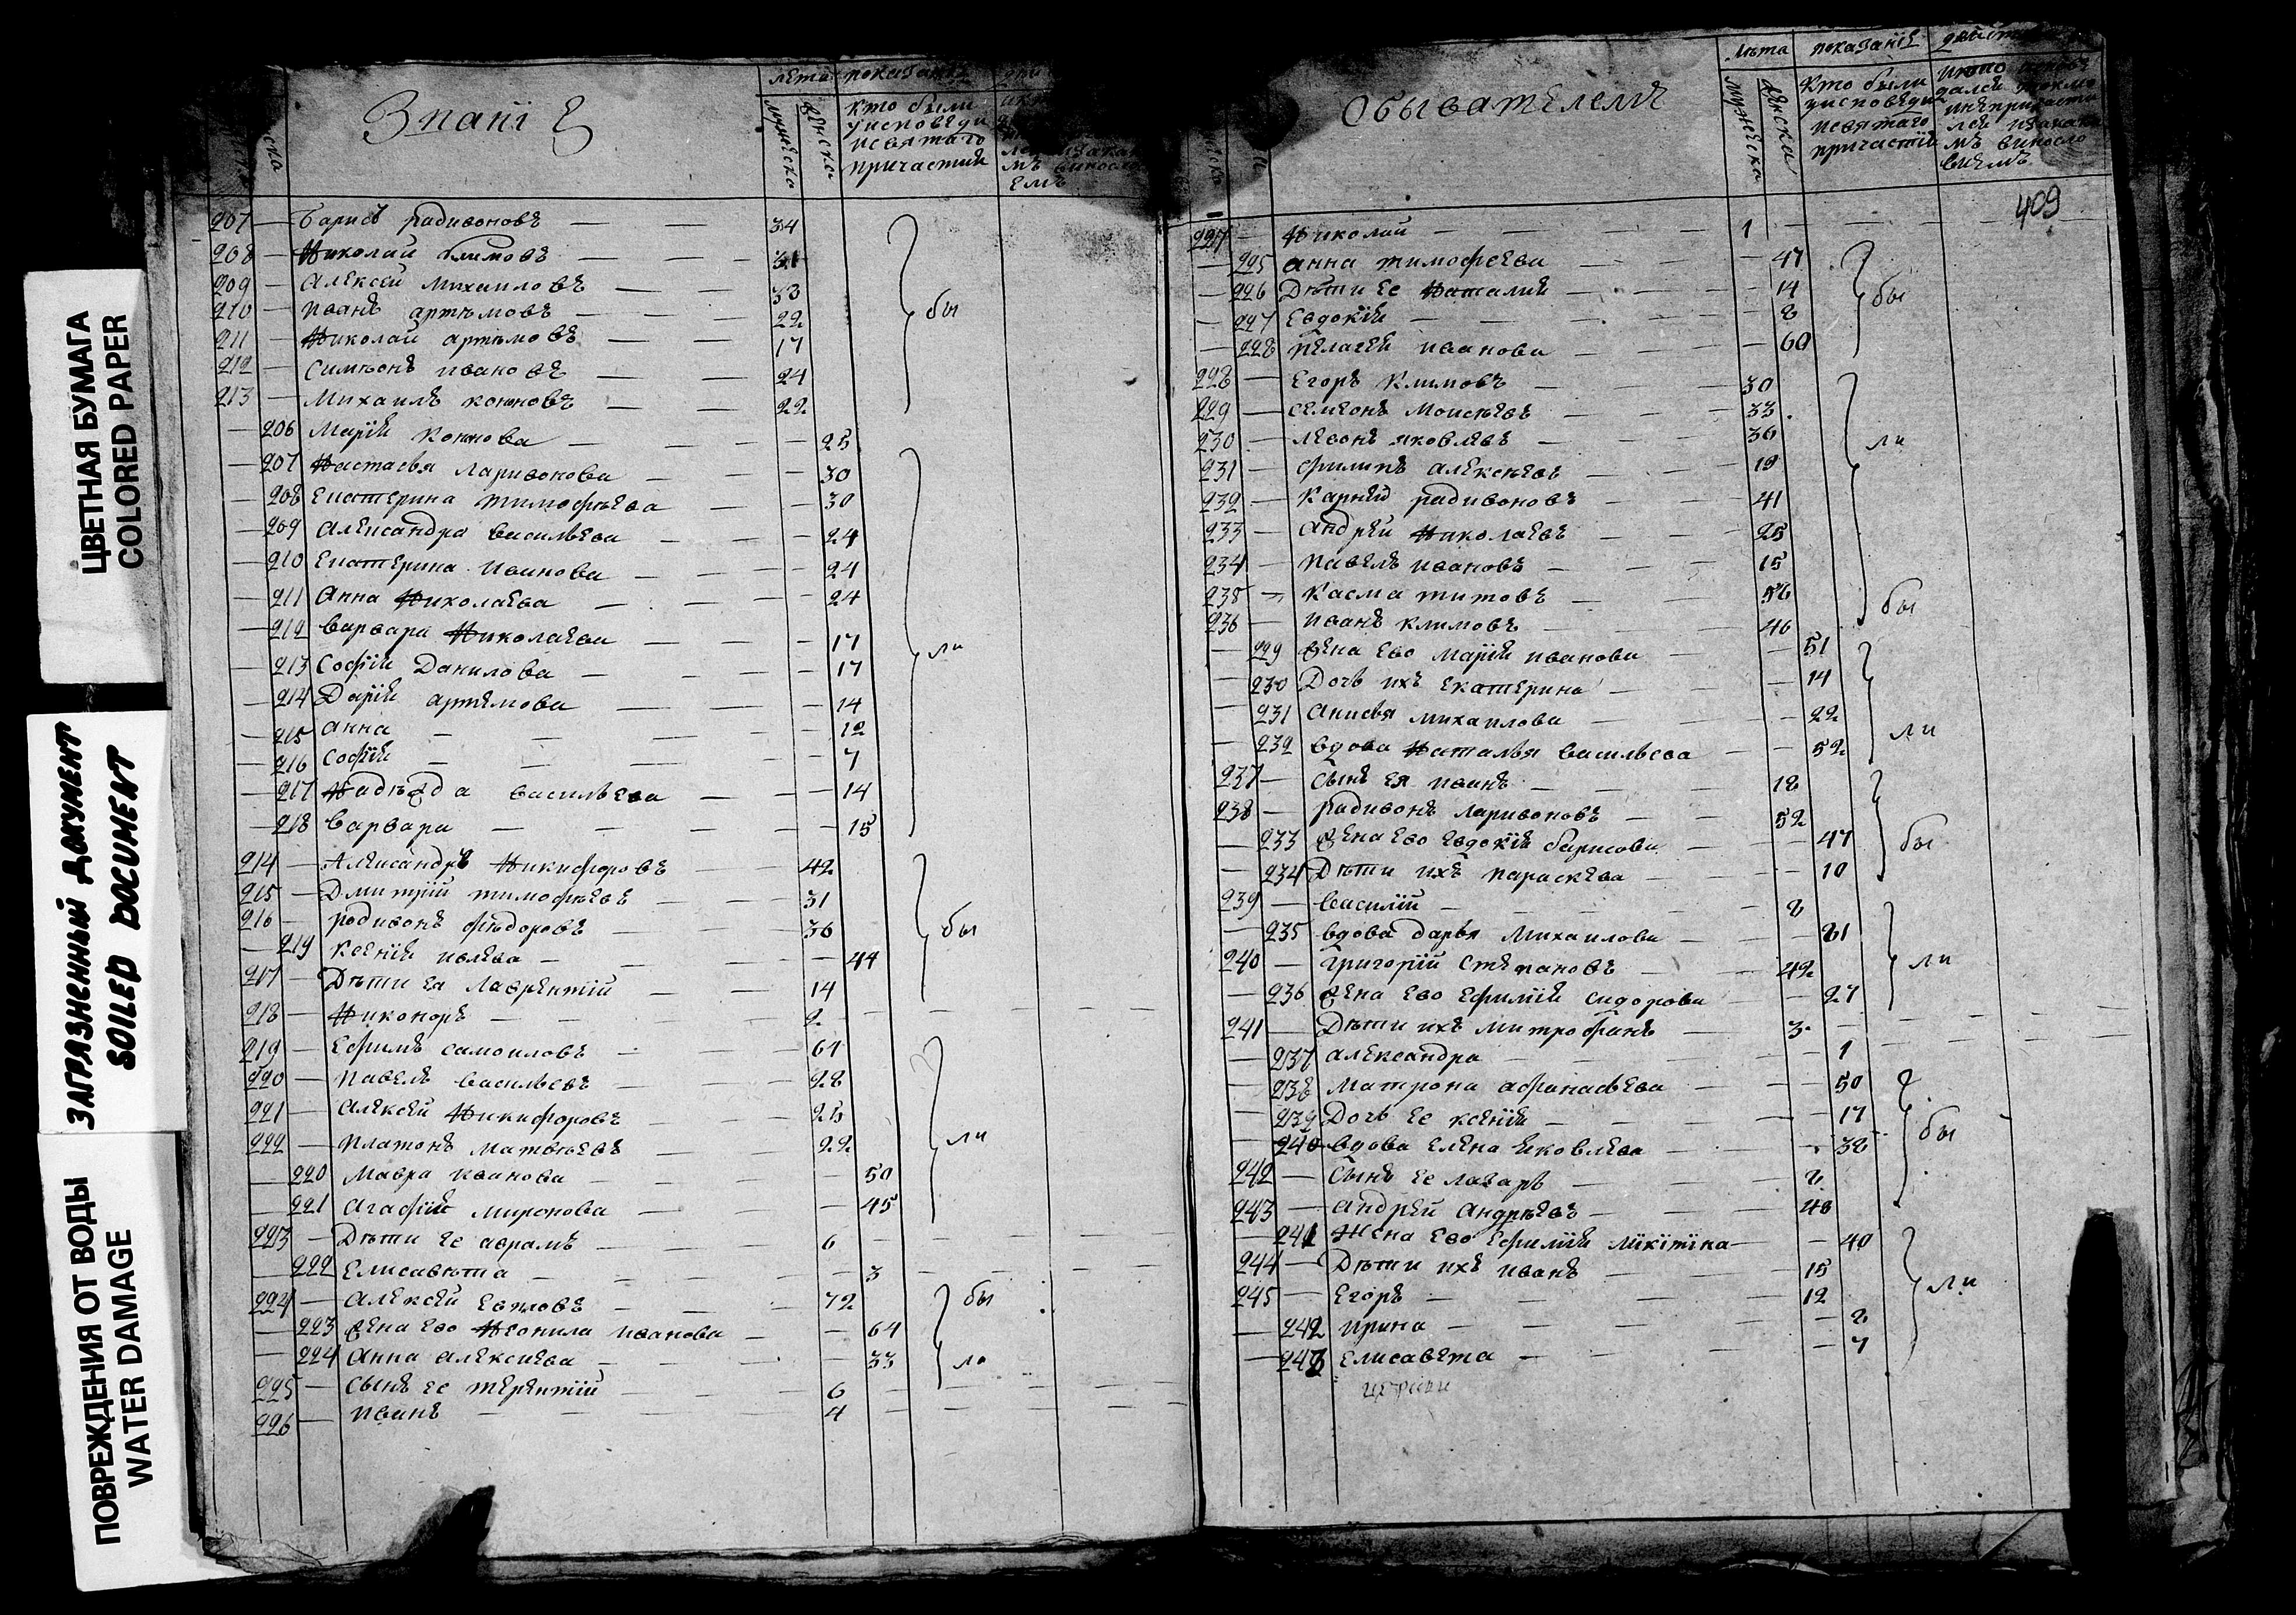 ЦВЕТНАЯ БУМАГА
COLORED PAPER
ЗАГРЯЗНЕННЫЙ ДОКУМЕНТ
SOILED DOCUMENT
ПОВРЕЖДЕНИЯ ОТ ВОДЫ
WATER DAMAGE
Званіе
лета показаніе
мужеска
женска
кто были
уисповеди
исвятаго
причастия
207 — Барисъ радивоновъ — — 34
208 — Николай климовъ — — 31
209 — Алексей михаиловъ — — 33
210 — иванъ артѣмовъ — — 22
211 — Николай артѣмовъ — — 17
212 — Симѣонъ ивановъ — — 24
213 — Михаилъ кононовъ — — 22
бы
— 206 Марія кононова — — 25
— 207 Настасья ларивонова — 30
— 208 Екатерина тимофѣева — 30
— 209 Александра васильева — — 24
— 210 Екатерина иванова — — 24
— 211 Анна Николаева — — 24
— 212 варвара Николаева — — 17
— 213 Софія Данилова — — 17
— 214 Дарія артемова — — 14
— 215 анна — — 12
— 216 Софія — — 7
— 217 Надѣжда васильева — — 14
— 218 варвара — — 15
ли
214 — Александръ Никифоровъ — 42
215 — Дмитрій тимофѣевъ — — 31
216 — радивонъ фѣдоровъ — — 36
— 219 Ксенія — — 44
217 — Дѣти ея лаврентій — — 14
бы
218 — Никоноръ — — 2
219 — Ефимъ самоиловъ — — 61
220 — павелъ васильевъ — — 28
221 — Алексей Никифоровъ — — 25
222 — платонъ матвѣевъ — — 22
— 220 мавра иванова — — 50
— 221 Агафія миронова — — 45
ли
223 — Дѣти ее аврамъ — — 6
— 222 Елисавѣта — — 3
224 — Алексей — — 72
бы
— 223 жена ево Неонила иванова — 64
— 224 Анна алексиева — — 33
ли
225 — сынъ ее терентій — — 6
226 — иванъ — — 4
Обывателемъ
лѣта показаніе
мужеска
женска
кто были
уисповеди
исвятаго
причастія
409
227 — Николай — — 1
— 225 анна тимофеева — — 47
— 226 Дѣти ее Наталия — — 14
— 227 Евдокія — — 8
— 228 пелагея иванова — — 60
бы
228 — Егоръ климовъ — — 30
229 — семенъ моисѣевъ — — 33
230 — левонъ яковлевъ — — 36
231 — филипъ алексѣевъ — — 19
232 — карней радивоновъ — — 41
233 — андрей Николаевъ — — 25
234 — павелъ ивановъ — — 15
ли
235 — касма титовъ — — 56
236 — иванъ климовъ — — 46
бы
— 229 жена ево марія иванова — 51
— 230 Дочь ихъ екатерина — — 14
— 231 анисья михаилова — — 22
— 232 вдова Наталья васильева — — 52
ли
237 — Сынъ ея иванъ — — 18
238 — радивонъ ларивоновъ — — 52
— 233 жена ево евдокія барисова — 47
— 234 Дѣти ихъ параскева — — 10
бы
239 — василій — — 8
— 235 вдова дарья михаилова — — 81
240 — григорій степановъ — — 42
— 236 жена ево ефимія сидорова — 27
ли
241 — Дѣти ихъ митрофанъ — — 3
— 237 александра — — 1
— 238 матрона афанасьева — — 50
— 239 Дочь ее ксенія — — 17
— 240 вдова елена яковлева — — 38
бы
242 — Сынъ ее лазарь — — 8
243 — андрей андрѣевъ — — 48
— 241 Жена ево ефимія микитина — — 40
244 — Дѣти ихъ иванъ — — 15
245 — егоръ — — 12
— 242 ирина — — 8
— 243 елисавета — — 7
ли